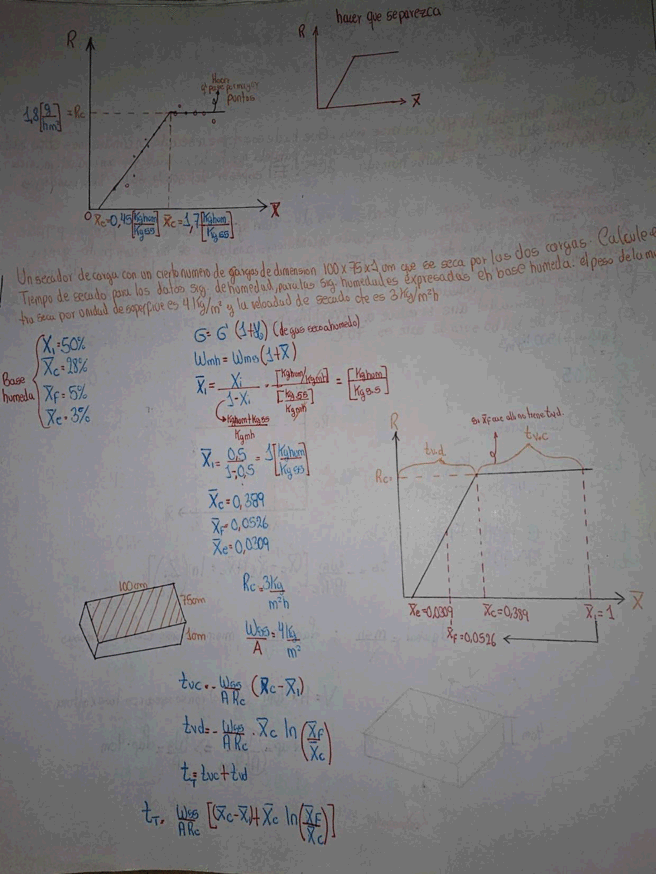 hacer que se parezca
R
R
X̄
Hacer
q' pase por mayor
puntos
1,8[g/hm²] = Rc
0 X̄e=0,45[Kghum/Kgss] X̄c=1,7[Kghum/Kgss]
X̄
Un secador de carga con un cierto numero de de dimension 100x75x1 cm que se seca por las dos cargas. Calcule e
Tiempo de secado para los datos sig. de humedad, para las sig. humedades expresadas en base humeda: el peso de la mu
tra seca por unidad de superficie es 4 Kg/m² y la veloadad de secado cte es 3 Kg/m²h
Base
humeda
X1=50%
X̄c=28%
X̄F=5%
X̄e=3%
G= G' (1+Y0) (de gas seco a humedo)
Wmh = Wms (1+X̄)
X̄1= Xi/1-Xi · [Kghum/Kgmh]/[Kgss/Kgmh] = [Kghum/Kgs.s]
Kghum+Kgss/Kgmh
X̄1= 0,5/1-0,5 = 1[Kghum/Kgss]
X̄c=0,389
X̄F=0,0526
X̄e=0,0309
R
Si X̄F cae alli no tiene tvd.
tvd
tvc
Rc
X̄
X̄e=0,0309 X̄c=0,389 X̄1=1
X̄F=0,0526
100cm
75cm
1cm
Rc=3Kg/m²h
Wss/A = 4Kg/m²
tvc = - Wss/ARc (X̄c-X̄1)
tvd= - Wss/ARc · X̄c ln(X̄F/X̄c)
tT= tvc+tvd
tT= Wss/ARc [(X̄c-X̄1)+X̄c ln(X̄F/X̄c)]